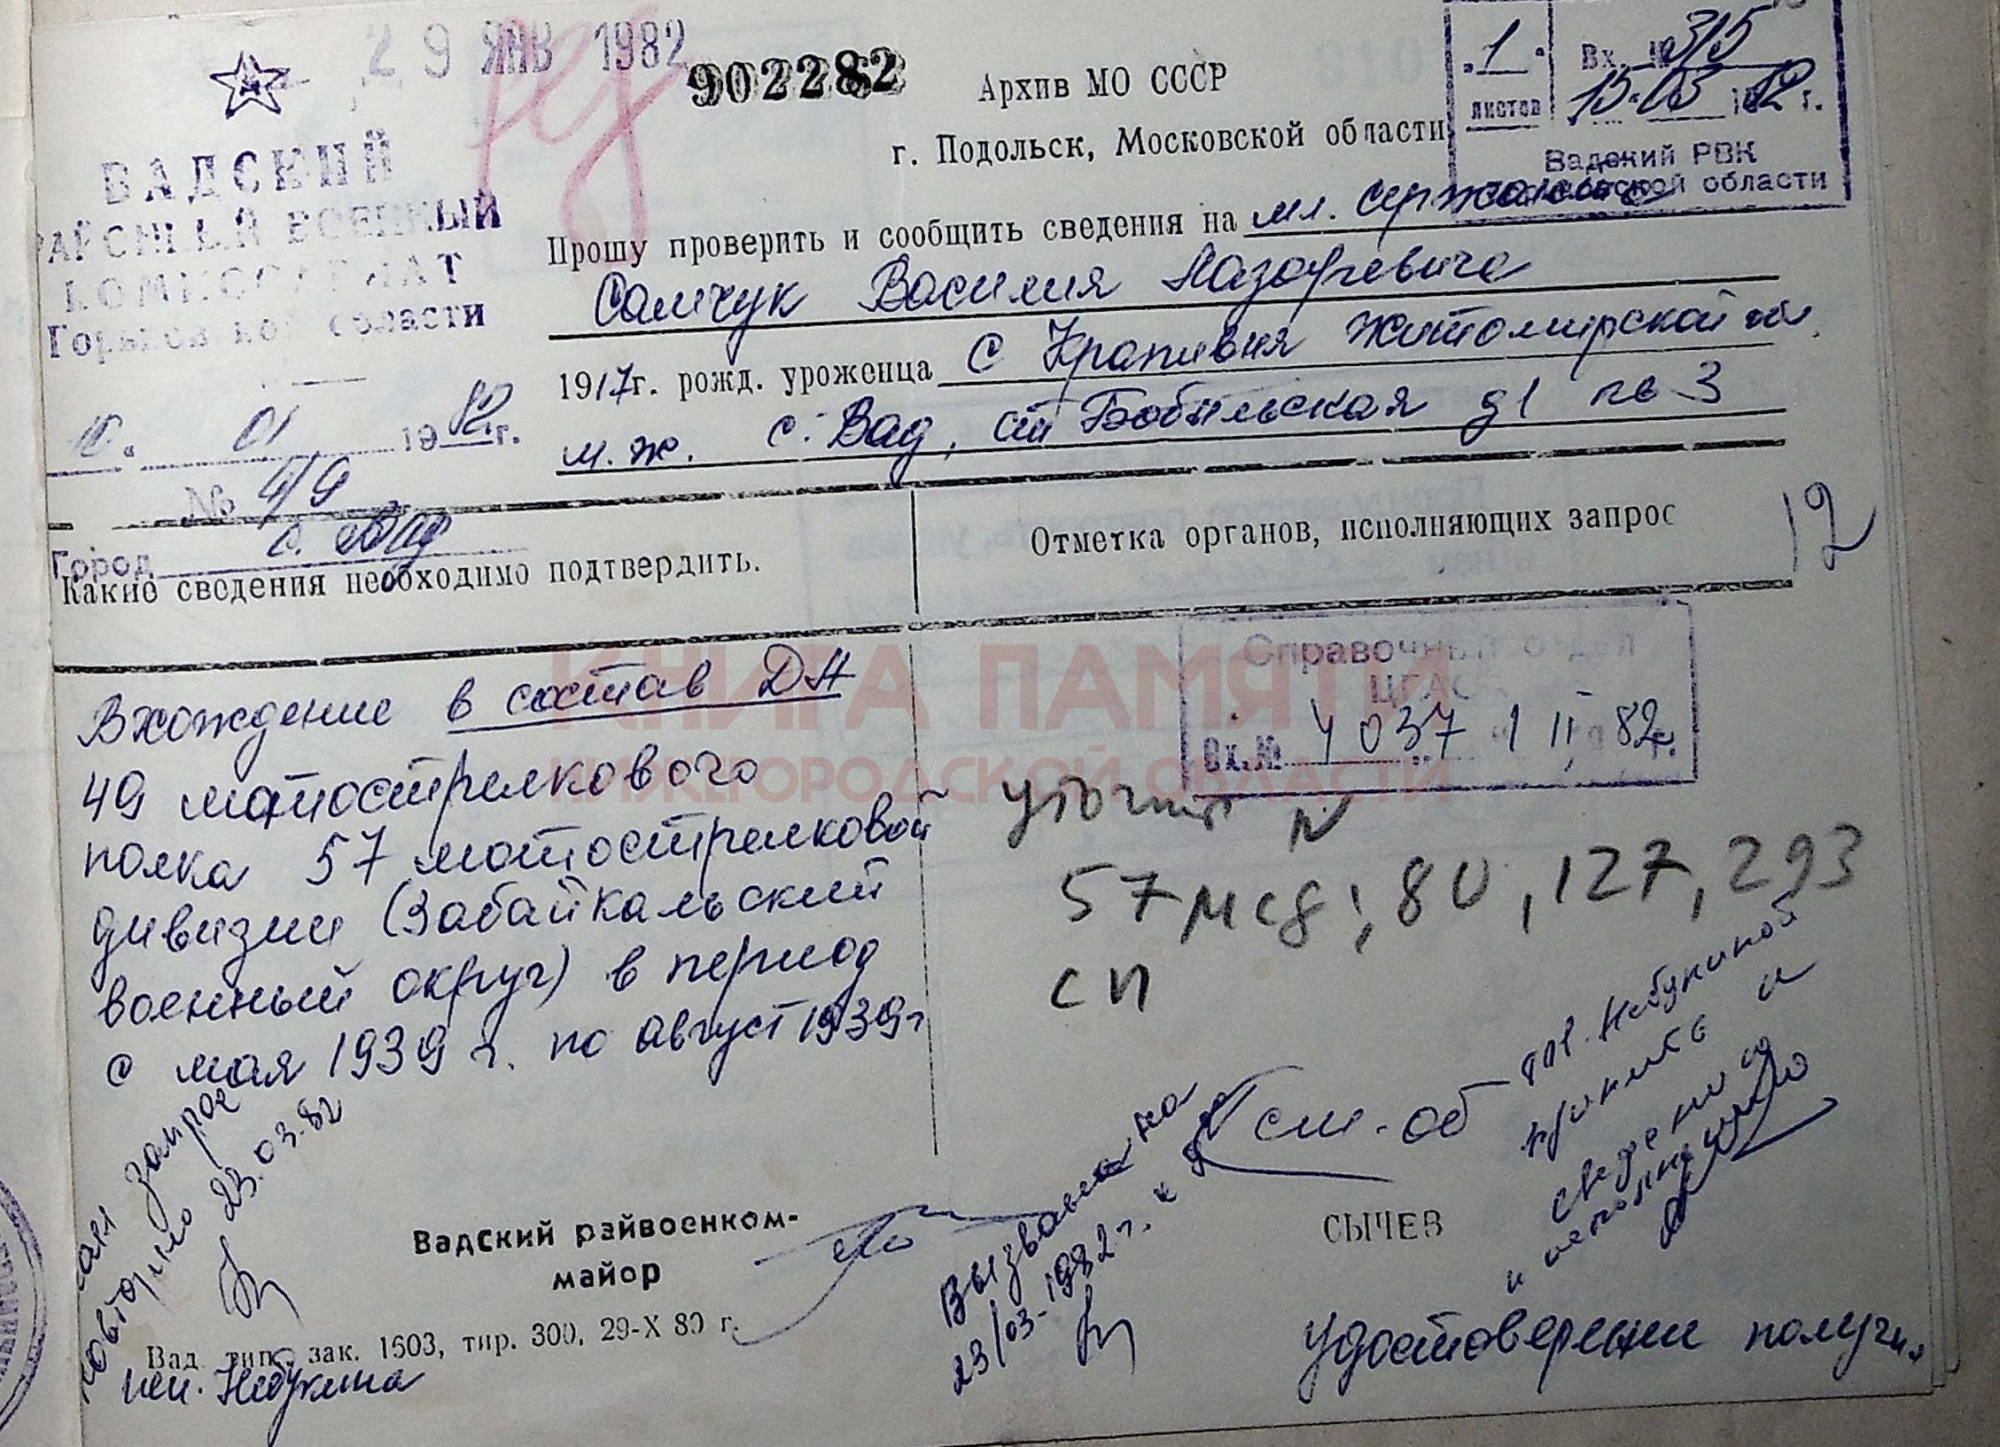 29 ЯНВ 1982
902282
ВАДСКИЙ
РАЙОННЫЙ ВОЕННЫЙ
КОМИССАРИАТ
Горьковской области
10. 01 1982 г.
№ 4/9
Город с. Вад
Архив МО СССР
г. Подольск, Московской области
1 листов
Вх. № 315
15.03 1982 г.
Вадский РВК
Горьковской области
Прошу проверить и сообщить сведения на мл. сержанта
Самчук Василия Лазаревича
1917 г. рожд. уроженца с Крапивня Житомирской
м.ж. с. Вад, Бобыльская д1 кв 3
Какие сведения необходимо подтвердить.
Отметка органов, исполняющих запрос
12
Вхождение в состав ДА
49 мотострелкового
полка 57 мотострелковой
дивизии (Забайкальский
военный округ) в период
с мая 1939 г. по август 1939 г
Справочный отдел
ЦАМО
Вх.№ 4037 1 II 82 г.
КНИГА ПАМЯТИ
НИЖЕГОРОДСКОЙ ОБЛАСТИ
57 мсд; 80, 127, 293
сп
запрос
повторно 23.03.82
Вадский райвоенком-
майор
Вад. тип., зак. 1503, тир. 300, 29-X 80 г.
исп. Небукина
Вызвать на
23/03-1982 г.
см. об
тов. Небукиной
принять к
сведению
и исполнению
СЫЧЕВ
Удостоверении получил